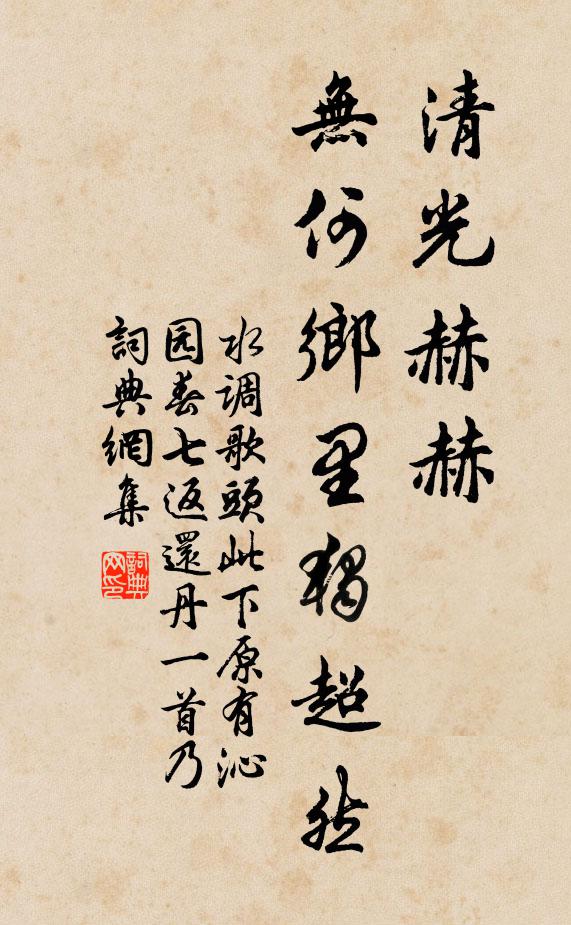 清光赫赫
無何鄉里獨超然
水調歌頭此下原有沁
园春七返還丹一首乃
詞典網集
詞典网印